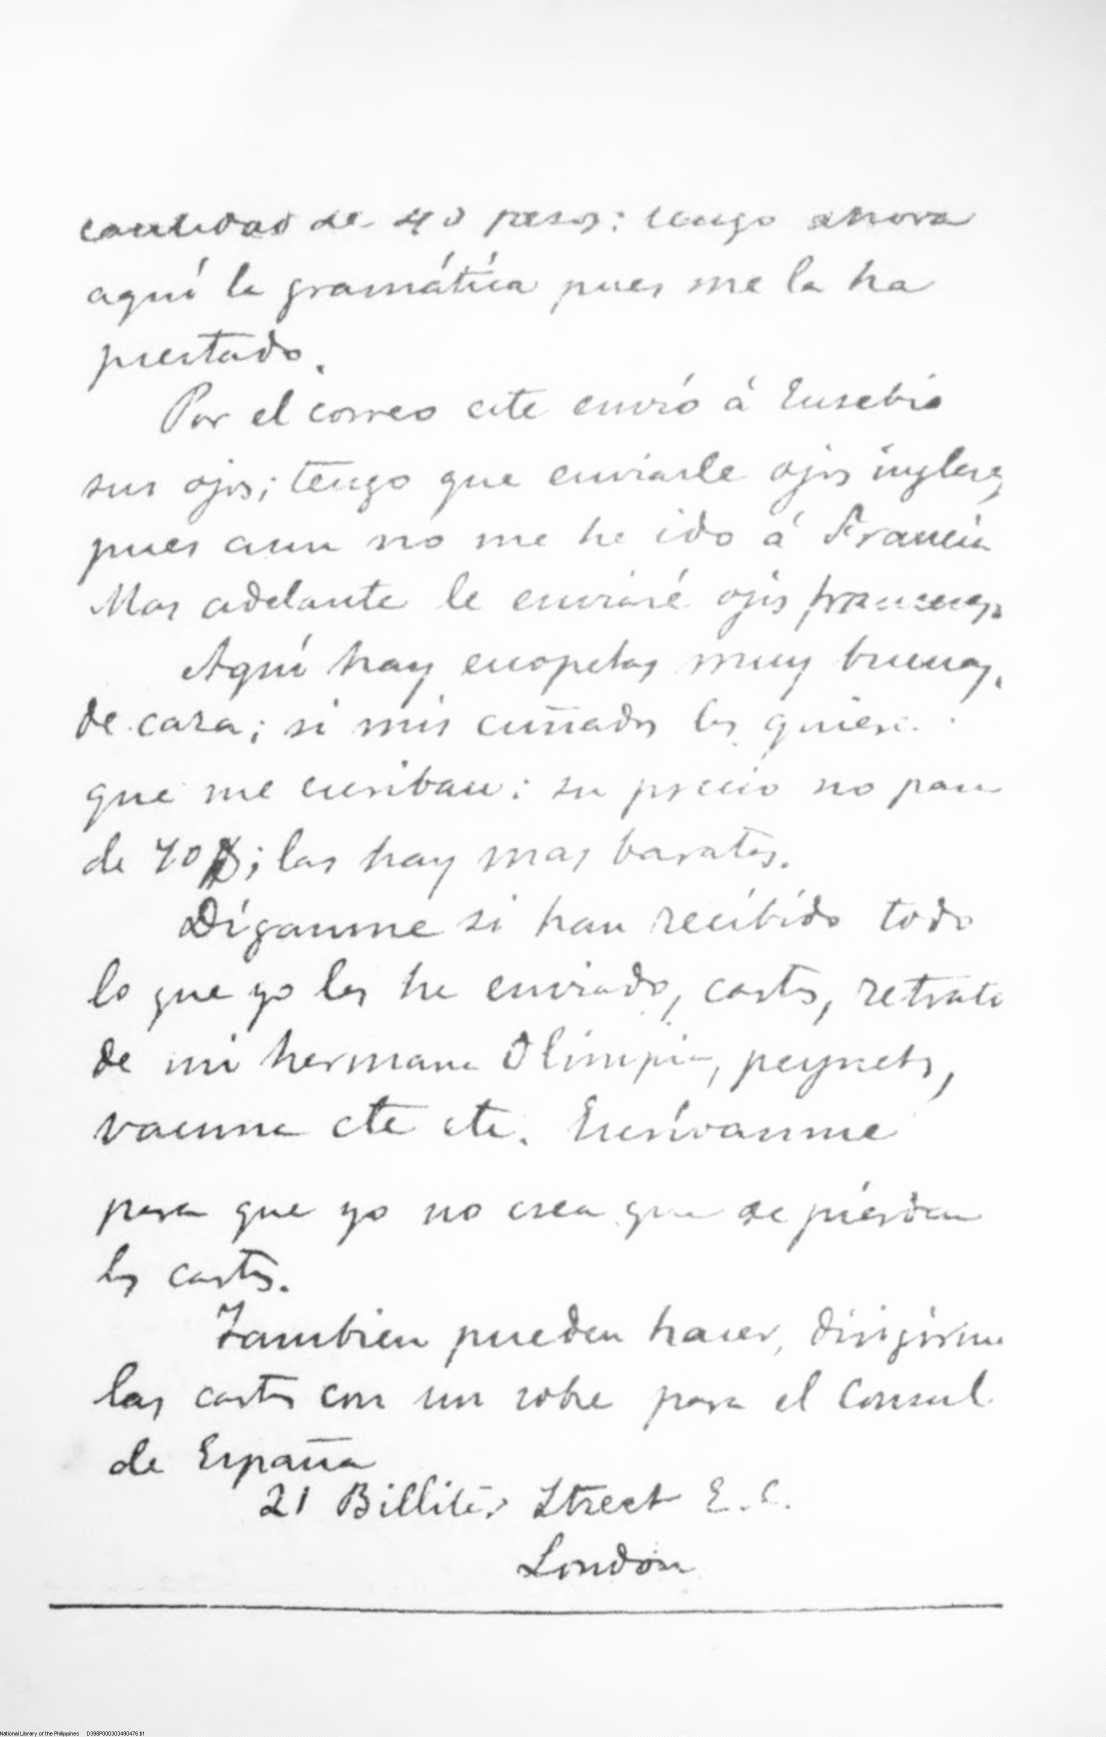 cantidad de 40 pesos: tengo ahora
aquí la gramática pues me la ha
prestado.
Por el correo este envió á Eusebio
sus ojos; tengo que enviarle ojos ingleses,
pues aun no me he ido á Francia
Mas adelante le enviaré ojos franceses.
Aquí hay escopetas muy buenas,
de caza; si mis cuñados las quieren
que me escriban: su precio no pasa
de 40 $; las hay mas baratas.
Díganme si han recibído todo
lo que yo les he enviado, cartas, retrato
de mi hermana Olimpia, peynetas,
vacuna etc etc. Escrívanme
para que yo no crea que se piérdan
las cartas.
Tambien pueden hacer, dirigirme
las cartas con un sobre para el Consul
de España
21 Billiter Street E. C.
London
National Library of the Philippines D396P000303490476.tif